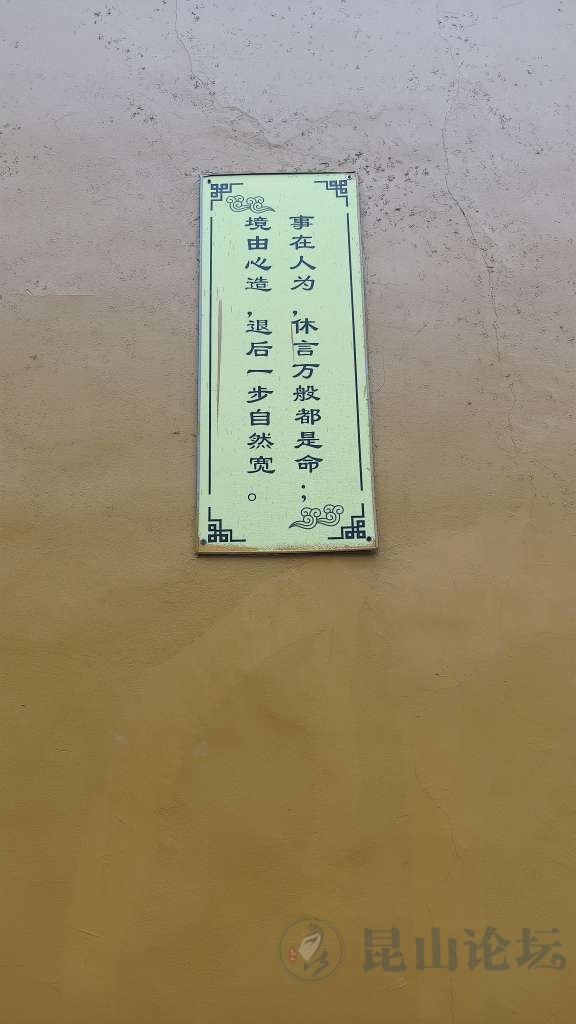 事在人为,休言万般都是命;
境由心造,退后一步自然宽。
昆山论坛